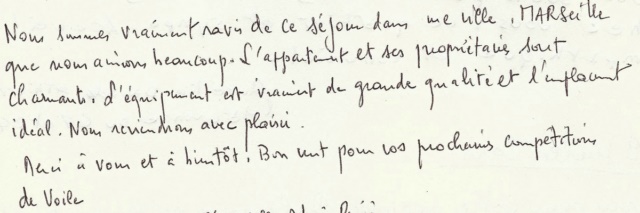 Nous sommes vraiment ravis de ce séjour dans une ville, MARSEILLE
que nous aimons beaucoup. L'appartement et ses propriétaires sont
charmants. L'équipement est vraiment de grande qualité et l'emplacement
idéal. Nous reviendrons avec plaisir.
Merci à vous et à bientôt. Bon vent pour vos prochaines compétitions
de Voile